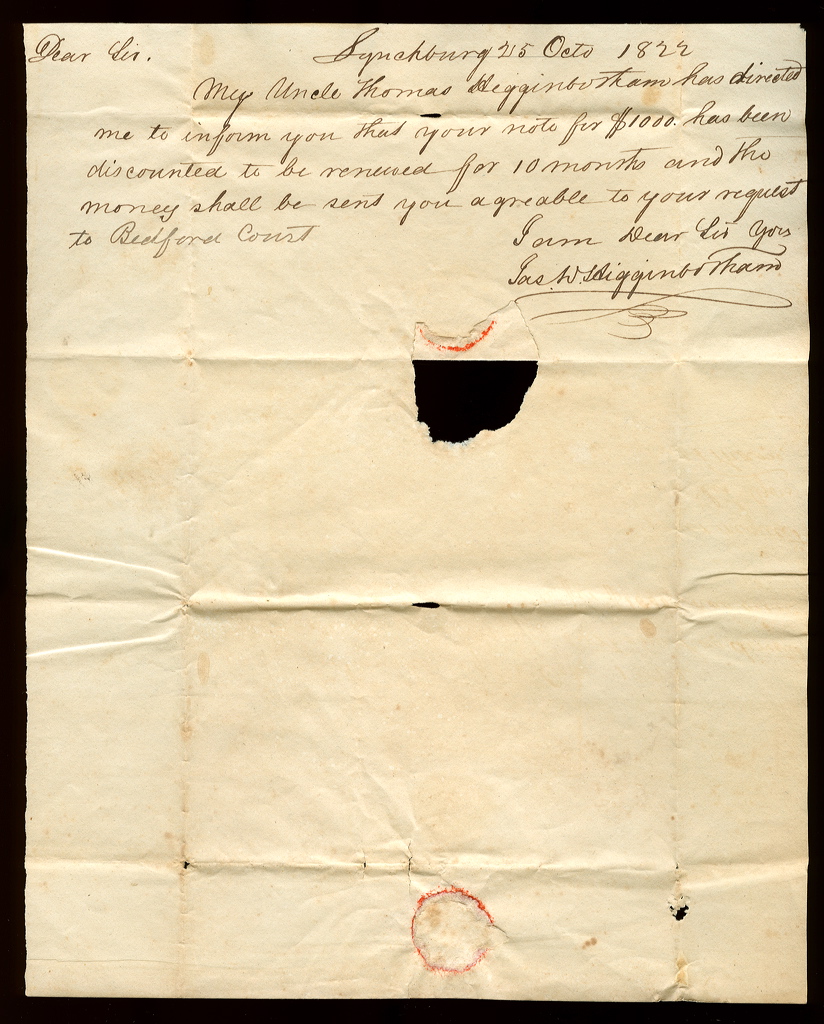 Dear Sir. Lynchburg 25 Octo 1822
My Uncle Thomas Higginbotham has directed
me to inform you that your note for $1000. has been
discounted to be renewed for 10 months and the
money shall be sent you agreable to your request
to Bedford Court
I am Dear Sir Yors
Jas. W Higginbotham